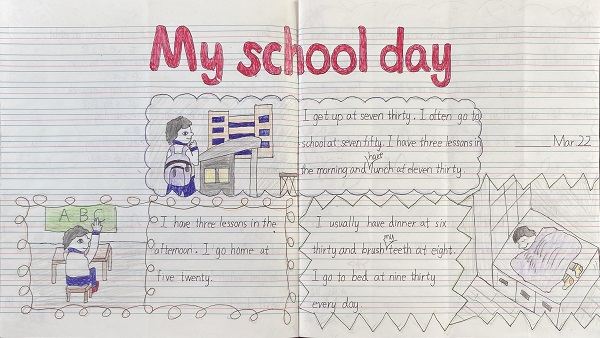 My school day
I get up at seven thirty. I often go to
school at seven fifty. I have three lessons in
the morning and have lunch at eleven thirty.
Mar.22
A B C
I have three lessons in the
afternoon. I go home at
five twenty.
I usually have dinner at six
thirty and brush my teeth at eight.
I go to bed at nine thirty
every day